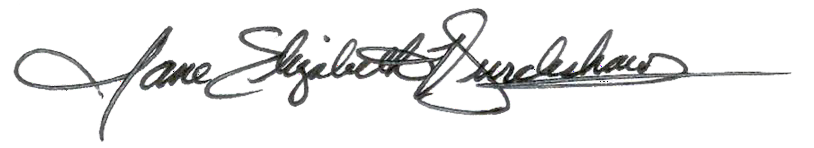 Jane Elizabeth Burdeshaw